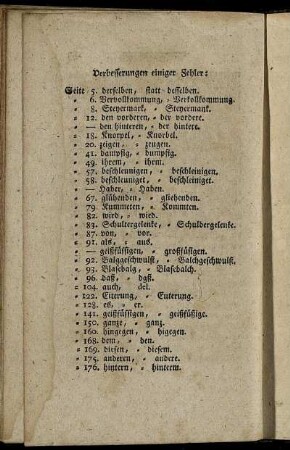 Verbesserungen einiger Fehler:
Seite 5. derselben, statt desselben.
" 6. Vervollkommung, " Verkollkommung.
" 8. Steyermark, " Steyermank.
" 12. den vorderen, " der vordere.
" — den hinteren, " der hintere.
" 18. Knorpel, " Knorbel.
" 20. zeigen, " zeugen.
" 41. dampfig, " dumpfig.
" 49. ihrem, " ihem.
" 57. beschleunigen, " beschleinigen.
" 58. beschleuniget, " beschleiniget.
" — Haber, " Haben.
" 67. glühenden, " gliehenden.
" 79. Kummeten, " Konmten.
" 82. wird, " wied.
" 83. Schultergelenke. " Schuldergelenke.
" 87. von, " vor.
" 91. als, " aus.
" — geißfüßigen, " großfüßigen.
" 92. Balggeschwulst, " Balchgeschwulst.
" 93. Blasebalg, " Blasebalch.
" 96. daß, " dgß.
" 104. auch, del.
" 122. Eiterung, " Euterung.
" 128. es, " er.
" 141. geißfüßigen, " geißfüßige.
" 150. ganze, " ganz.
" 160. hingegen, " higegen.
" 168. dem, " den.
" 169. diesen, " diesem.
" 175. anderen, " andere.
" 176. hintern, " hinterm.